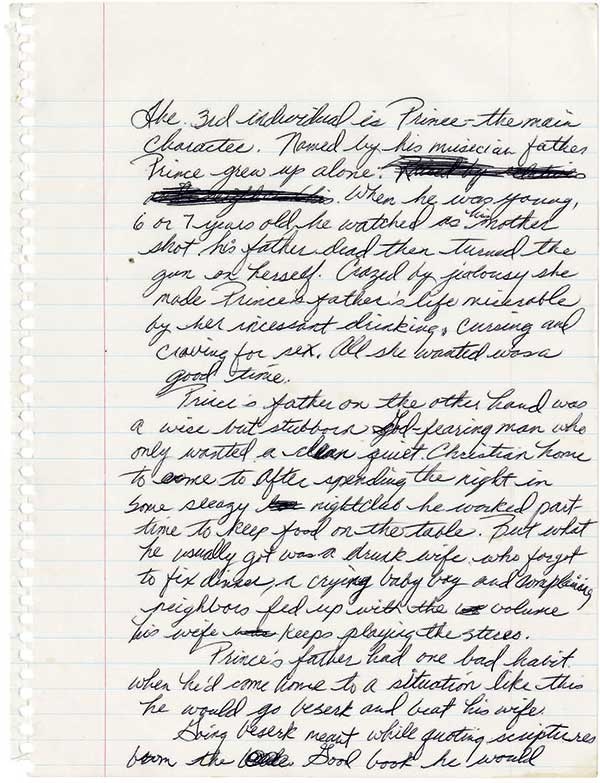 The 3rd individual is Prince - the main
character. Named by his musician father
Prince grew up alone.
When he was young,
6 or 7 years old, he watched as his mother
shot his father dead then turned the
gun on herself. Crazed by jealousy she
made Prince's father's life miserable
by her incessant drinking, cursing and
craving for sex. All she wanted was a
good time.
Prince's father on the other hand was
a wise but stubborn God-fearing man who
only wanted a clean quiet Christian home
to come to after spending the night in
some sleazy nightclub he worked part-
time to keep food on the table. But what
he usually got was a drunk wife who forgot
to fix dinner, a crying baby boy and complaining
neighbors fed up with the volume
his wife keeps playing the stereo.
Prince's father had one bad habit.
when he'd come home to a situation like this
he would go beserk and beat his wife.
Going beserk meant while quoting scriptures
from the Good book he would